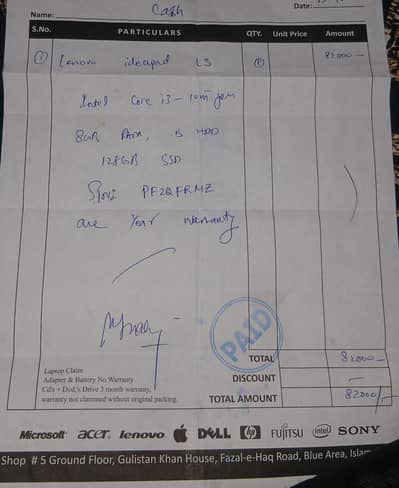 Name: Cash Date:
S.No. PARTICULARS QTY. Unit Price Amount
① Lenovo ideapad L3 ① 82000 —
Intel Core i3 - 10th gen
8GB RAM, HDD
128GB SSD
PF2QFRMZ
one Year warranty
PAID
TOTAL 82000 —
DISCOUNT —
TOTAL AMOUNT 82000/-
Laptop Claim
Adapter & Battery No Warranty
Cd's + Dvd,'s Drive 3 month warranty,
warranty not claimed without original packing.
Microsoft acer lenovo DELL hp FUJITSU intel SONY
Shop # 5 Ground Floor, Gulistan Khan House, Fazal-e-Haq Road, Blue Area, Islam